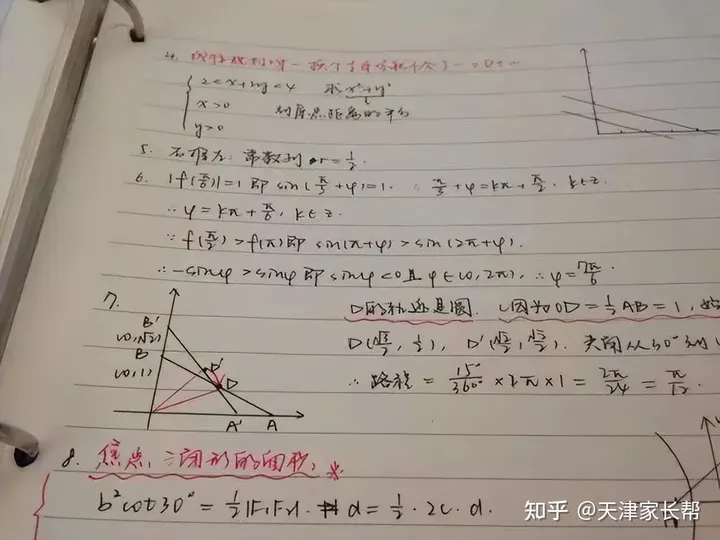 4.
2<x+2y<4 求x²+y²
x>0 到原点距离的平方
y>0
5. 常数列 or=1/2.
6. |f(π/6)|=1 即 sin(π/3+φ)=1. ∴ π/3+φ=kπ+π/2, k∈z.
∴ φ=kπ+π/6, k∈z.
∵ f(π/2)>f(π) 即 sin(π+φ)>sin(2π+φ).
∴ -sinφ>sinφ 即 sinφ<0 且 φ∈(0,2π), ∴ φ=7π/6.
7.
D的轨迹是圆. (因为OD=1/2AB=1,
B'
(0,√2)
B
(0,1)
D'
D
A'
A
D(√3/2, 1/2), D'(√2/2, √2/2). 夹角从30°到
∴ 路程 = 15°/360° ×2π×1 = 2π/24 = π/12
8. 焦点三角形的面积: *
b²cot30° = 1/2|F₁F₂|. d = 1/2·2c·d.
知乎 @天津家长帮